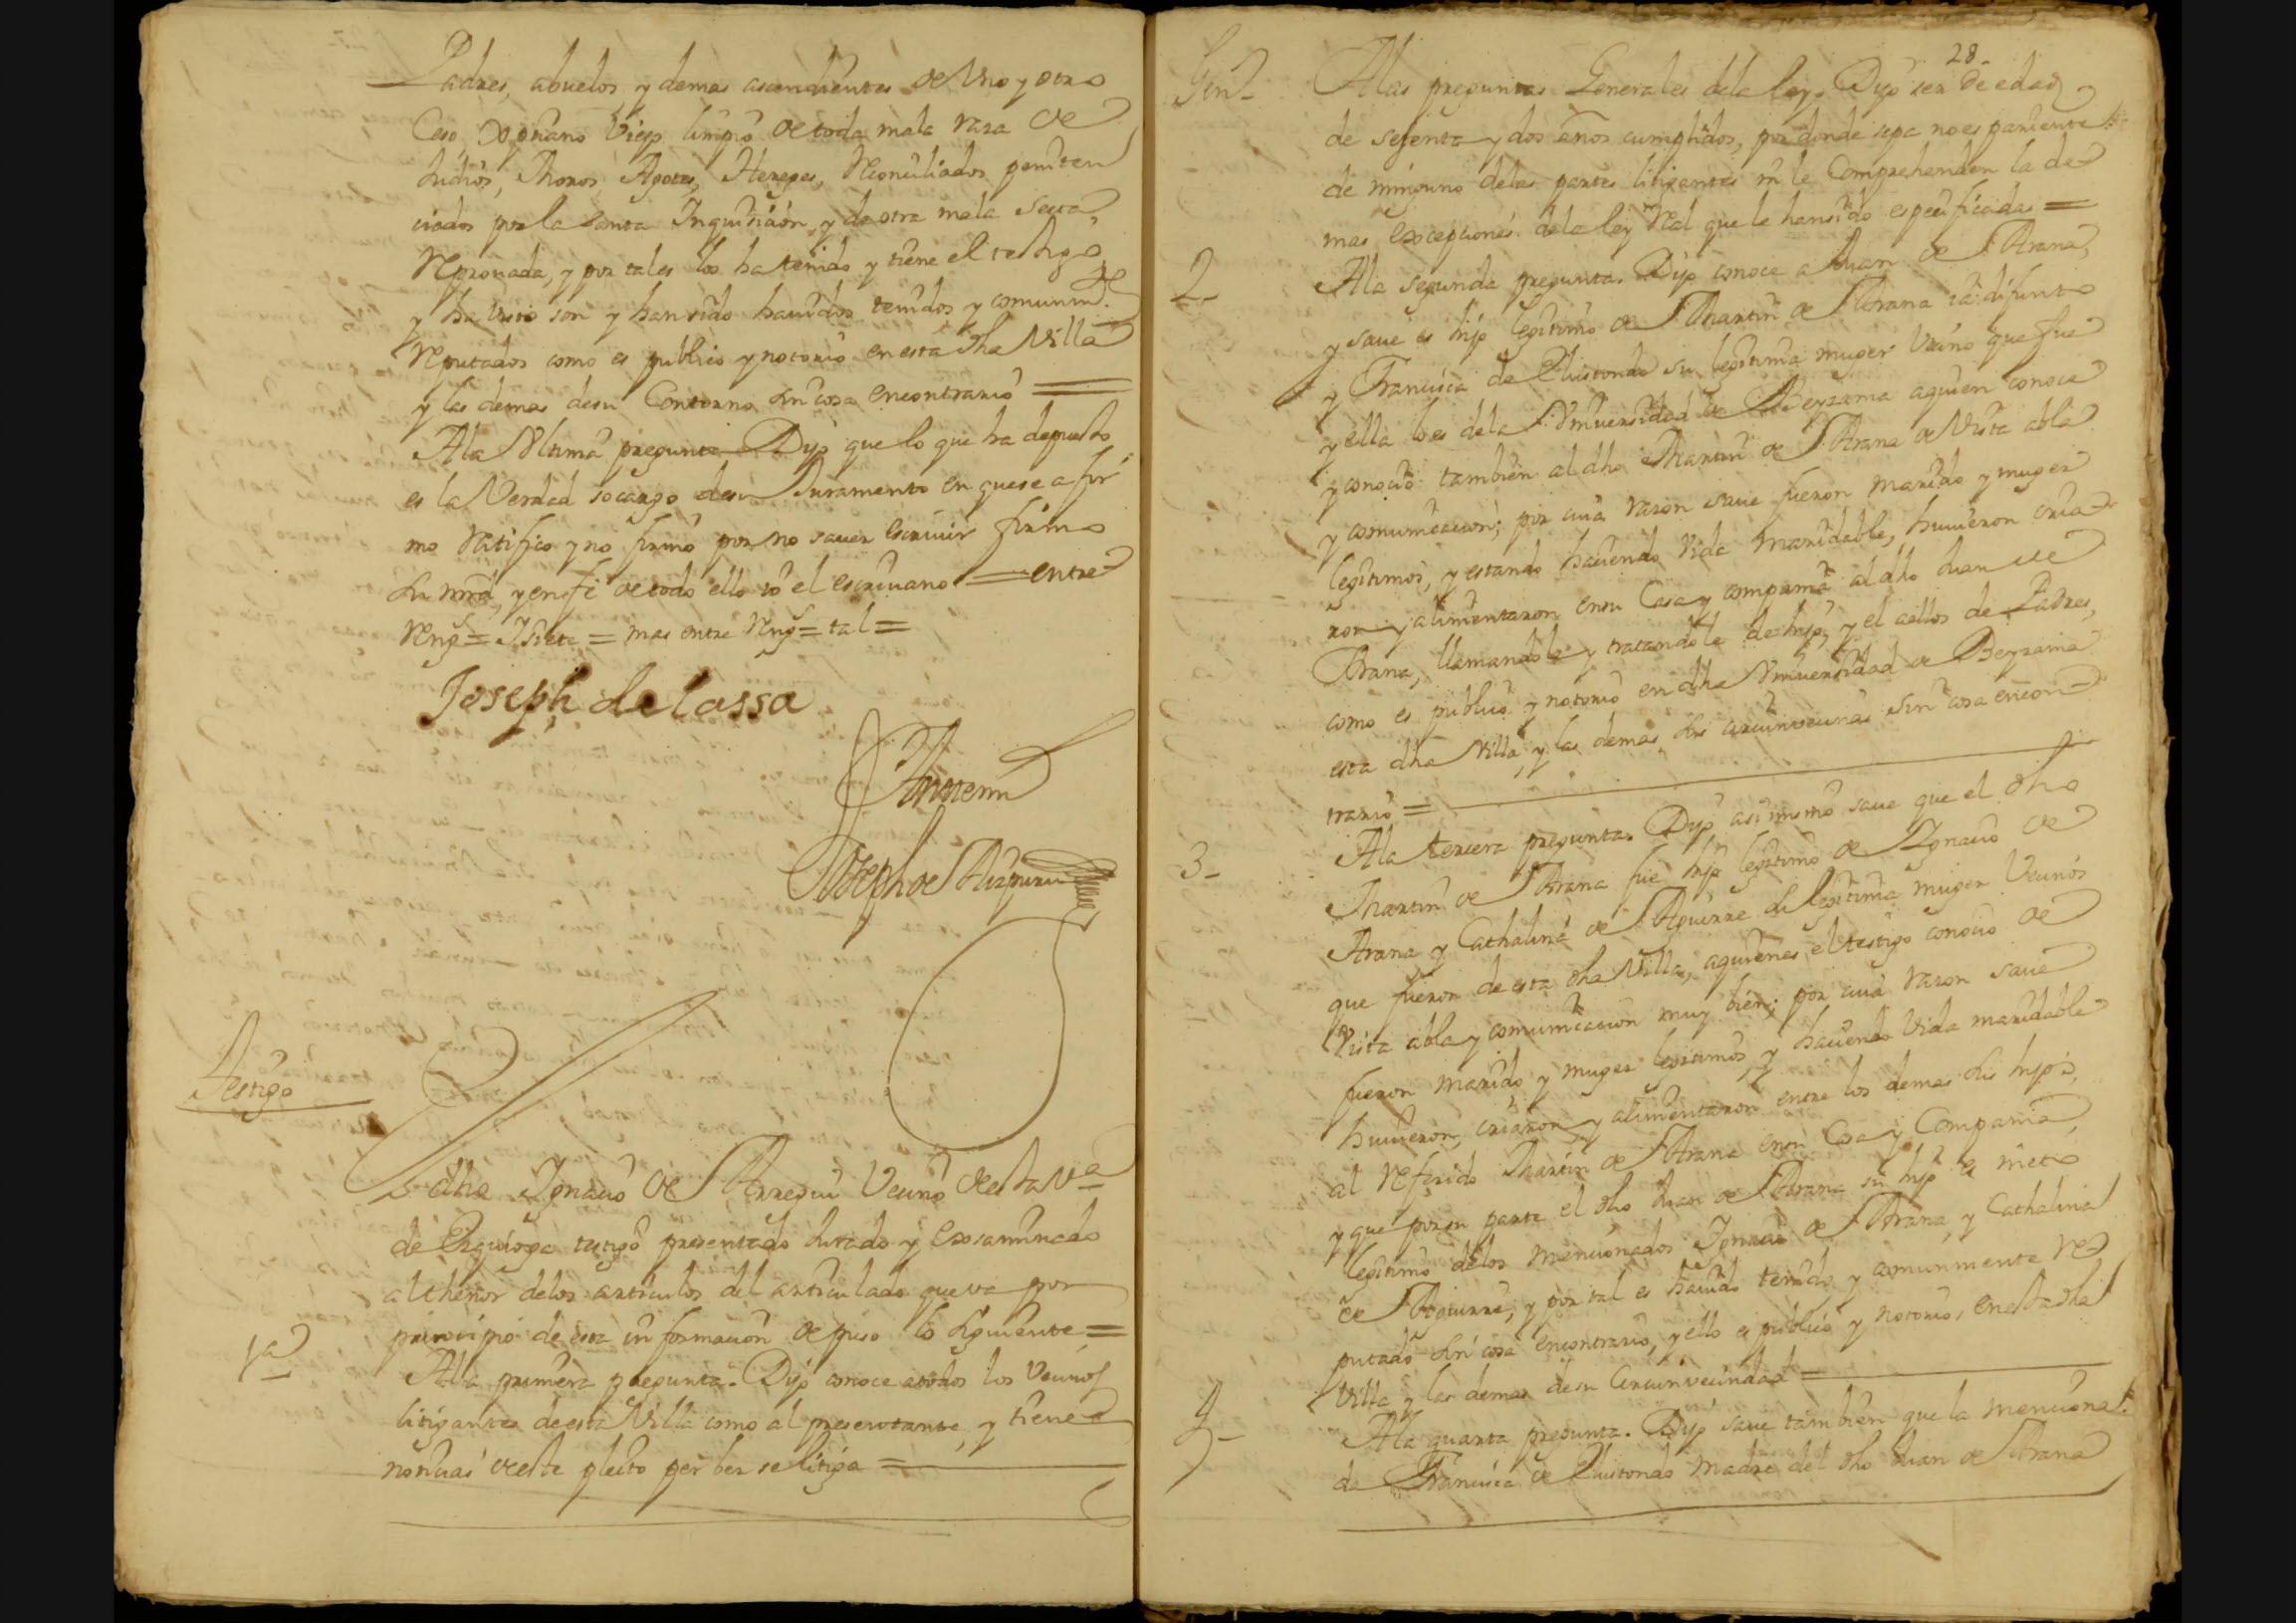 Padres, abuelos, y demas ascendientes de Uno y otro
Cexo, Xpñano Viejo limpio de toda mala raza de
Judios, Moros, Agotes, Herejes, Reconciliados peniten
ciados por la Santa Inquisicion, y de otra mala Secta
Reprovada, y por tales los ha tenido y tiene el testigo
y ha visto son y han sido havidos tenidos y comunmte
Reputados como es publico y notorio en esta dha Villa
y las demas de su Contorno sin cosa encontrario =
A la Ultima pregunta Dijo que lo que ha depuesto
es la Verdad so cargo de su Juramento en que se a fir
mo Ratifico y no firmo por no saver escrivir firmo
su mrd, y en fe de todo ello io el escrivano = entre
Reng.s = = mas entre Reng.s = tal =
Joseph de lassa
Antemi
Joseph de Aizpuru
Testigo
dho Ignacio de Arregui Vecino de esta Va
de Ezquioga testigo presentado Jurado y Exsaminado
al thenor de los articulos del articulado que va por
principio de esta informacion depuso lo siguiente =
1a
A la primera pregunta. Dijo conoce a todos los Vecinos
litigantes de esta Villa como al presentante, y tiene
noticias de este pleito se litiga =
28
Gen.
A las preguntas Generales de la ley. Dijo ser de edad
de setenta y dos años cumplidos, por donde sepa no es pariente
de ninguno de las partes litigantes ni le Comprehenden la de
mas excepciones de la ley Real que le han sido especificadas =
2
A la segunda pregunta. Dijo conoce a Juan de Arana,
y save es hijo legitimo de Martin de Arana ia difunto
y Francisca de Eliutondo su legitima muger Vecino que fue
y ella lo es de la Universidad de Beyzama a quien conoce
y conocio tambien al dho Martin de Arana de Vista abla
y comunicacion; por cuia razon save fueron marido y muger
legitimos, y estando haciendo Vida maridable, huvieron cria
ron y alimentaron en su Casa y compania al dho Juan de
Arana, llamandole y tratandole de hijo, y el a ellos de Padres,
como es publico y notorio en dha Universidad de Beyzama
esta dha Villa, y las demas sus circunvecinas sin cosa encon
trario =
3
A la tercera pregunta. Dijo asi mismo save que el dho
Martin de Arana fue hijo legitimo de Ignacio de
Arana y Cathalina de Aguirre su legitima muger Vecinos
que fueron de esta dha Villa, a quienes el testigo conocio de
Vista abla y comunicacion muy bien; por cuia razon save
fueron marido y muger legitimos, y haciendo Vida maridable
huvieron, criaron y alimentaron entre los demas sus hijos,
al referido Martin de Arana en su Casa y Compania,
y que por su parte el dho Juan de Arana su hijo es nieto
legitimo de los mencionados Ignacio de Arana, y Cathalina
de Aguirre, y por tal es havido tenido y comunmente Re
putado sin cosa encontrario, y ello es publico y notorio, en esta dha
Villa y las demas de su Circunvecindad =
4
A la quarta pregunta. Dijo save tambien que la menciona
da Francisca de Eliutondo madre del dho Juan de Arana